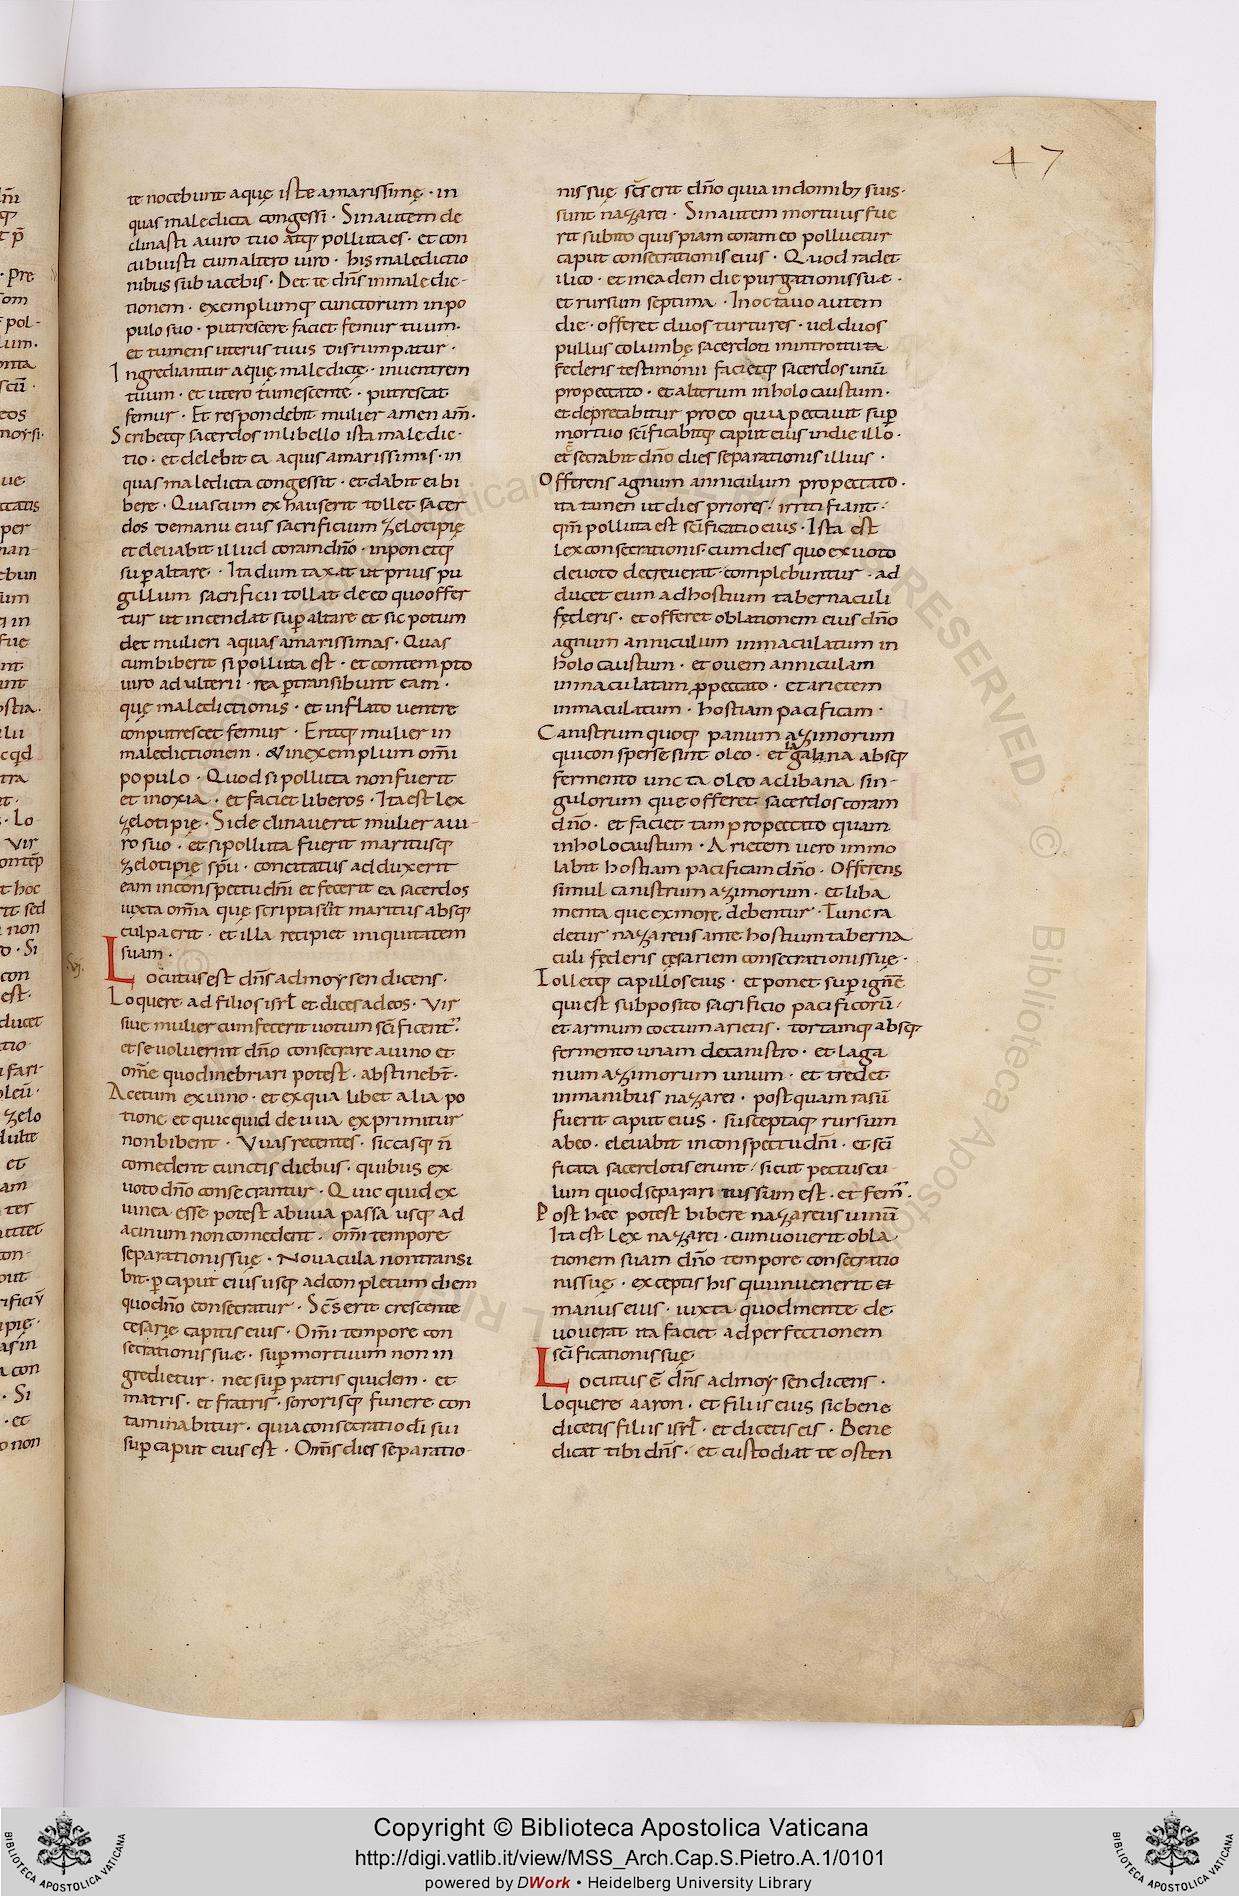 47
te nocebunt aquę iste amarissimę · in
quas maledicta congessi · Sinautem de
clinasti auiro tuo atq; polluta es · et con
cubuisti cum altero uiro · his maledictio
nibus subiacebis · Det te dñs in maledic
tionem · exemplumq; cunctorum in po
pulo suo · putrescere faciet femur tuum ·
et tumens uterus tuus disrumpatur ·
Ingrediantur aquę maledictę · inuentrem
tuum · et utero tumescente · putrescat
femur · Et respondebit mulier amen am̄ ·
Scribetq; sacerdos in libello ista maledic
tio · et delebit ea aquis amarissimis · in
quas maledicta congessit · et dabit ei bi
bere · Quas cum exhauserit tollet sacer
dos de manu eius sacrificium zelotipię
et eleuabit illud coram dño · inponetq;
sup altare · Ita dum taxat ut prius pu
gillum sacrificii tollat de eo quo offer
tur ut incendat sup altare et sic potum
det mulieri aquas amarissimas · Quas
cum biberit si polluta est · et contempto
uiro adulterii · rea ptransibunt eam ·
quę maledictionis · et inflato uentre
conputrescet femur · Eritq; mulier in
maledictionem · & in exemplum omĩ
populo · Quod si polluta non fuerit
et inoxia · et faciet liberos · Ita est lex
zelotipię · Si declinauerit mulier a ui
ro suo · et si polluta fuerit maritusq;
zelotipię spũ · concitatus adduxerit
eam in conspectu dñi et fecerit ea sacerdos
iuxta om̄ia quę scripta sũt maritus absq;
culpa erit · et illa recipiet iniquitatem
suam ·
vj.
Locutus est dñs ad moysen dicens ·
Loquere ad filios isrł et dices ad eos · Vir
siue mulier cum fecerit uotum scĩficent
et se uoluerint dño consecrare a uino et
om̄e quod inebriari potest · abstinebt̄ ·
Acetum ex uino · et ex qua libet alia po
tione et quicquid de uua exprimitur
non bibent · Vuas recentes · siccasq; ñ
comedent cunctis diebus · quibus ex
uoto dño consecrantur · Quicquid ex
uinea esse potest ab uua passa usq; ad
acinum non comedent · omĩ tempore
separationis suę · Nouacula non transi
bit p caput eius usq; ad conpletum diem
quo dño consecratur · Scs̄ erit crescente
cesarię capitis eius · Omĩ tempore con
secrationis suae · sup mortuum non in
gredietur · nec sup patris quidem · et
matris · et fratris · sororisq; funere con
taminabitur · quia consecratio di sui
sup caput eius est · Oms̄ dies separatio
nis suę scs̄ erit dño quia in domib; suis ·
sunt nazarei · Sin autem mortuus fue
rit subito quispiam coram eo polluetur
caput consecrationis eius · Quod radet
ilico · et in eadem die purgationis suae ·
et rursum septima · In octauo autem
die · offeret duos turtures · uel duos
pullus columbę sacerdoti in introitu ta
federis testimonii facietq; sacerdos unũ
pro peccato · et alterum in holocaustum ·
et deprecabitur pro eo quia peccauit sup
mortuo scĩficabitq; caput eius in die illo ·
et secrabit dño dies separationis illius ·
Offerens agnum anniculum pro peccato ·
ita tamen ut dies priores · irriti fiant ·
qm̃ polluta est scĩficatio eius · Ista est
lex consecrationis · cum dies quo ex uoto
deuoto decreuerat complebuntur · ad
ducet eum ad hostium tabernaculi
fęderis · et offeret oblationem eius dño
agnum anniculum inmaculatum in
holocaustum · et ouem anniculam
inmaculatam ppeccato · et arietem
inmaculatum · hostiam pacificam ·
Canistrum quoq; panum azimorum
qui consperse sint oleo · et lagana absq;
fermento uncta oleo ac libana sin
gulorum que offeret sacerdos coram
dño · et faciet tam pro peccato quam
in holocaustum · Arietem uero immo
labit hostiam pacificam dño · Offerens
simul canistrum azimorum · et liba
menta que ex more debentur · Tunc ra
detur nazareus ante hostium taberna
culi fęderis cęsariem consecrationis suę ·
Tolletq; capillos eius · et ponet sup ignẽ
qui est subposito sacrificio pacificorũ ·
et armum coctum arietis · tortamq; absq;
fermento unam de canistro · et laga
num azimorum unum · et tredet
in manibus nazarei · postquam rasũ
fuerit caput eius · susceptaq; rursum
ab eo · eleuabit in conspectu dñi · et scĩ
ficata sacerdotis erunt · sicut pectuscu
lum quod separari iussum est · et fem̃ ·
Post haec potest bibere nazareus uinũ
Ita est lex nazarei · cum uouerit obla
tionem suam dño tempore consecratio
nis suę · exceptis his qui inuenerit et
manus eius · iuxta quod mente de
uouerat ita faciet ad perfectionem
scĩficationis suę
Locutus ē dñs ad moysen dicens ·
Loquere aaron · et filiis eius sic bene
dicetis filiis isrł · et dicetis eis · Bene
dicat tibi dñs · et custodiat te osten
Copyright © Biblioteca Apostolica Vaticana
http://digi.vatlib.it/view/MSS_Arch.Cap.S.Pietro.A.1/0101
powered by DWork • Heidelberg University Library